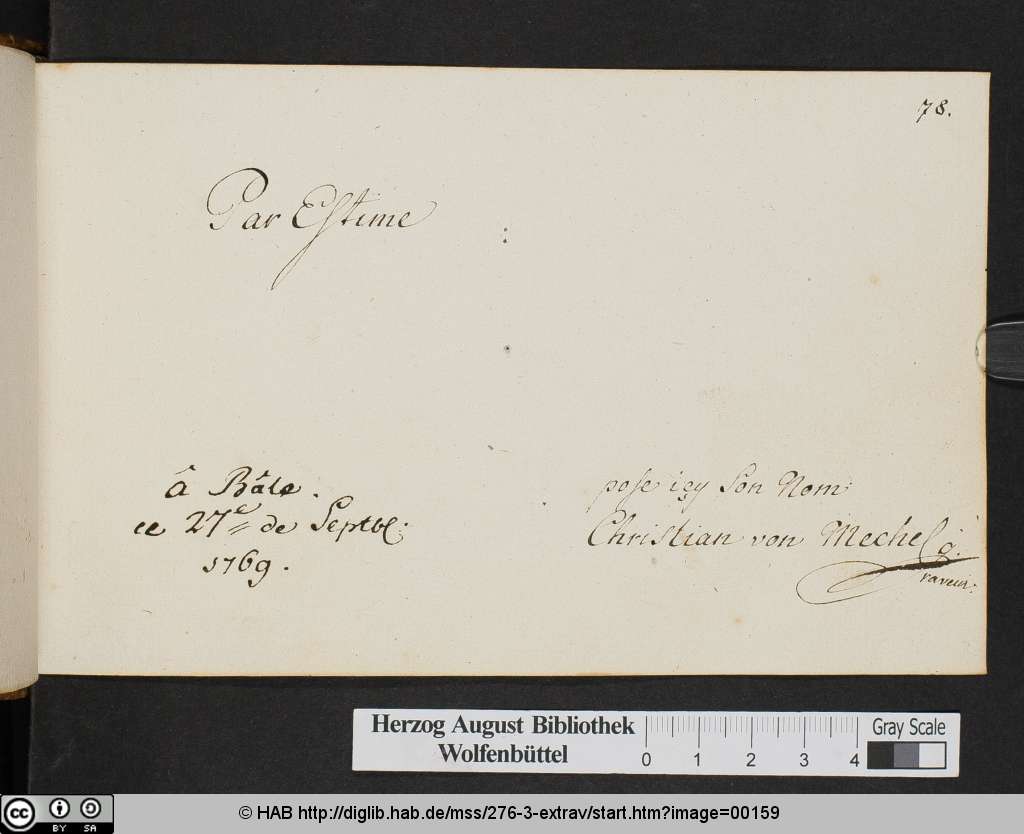 78.
Par Estime
â Bâle.
ce 27e de Septbl:
1769.
pose içy Son Nom
Christian von Mechel g:
raveur:
Herzog August Bibliothek
Wolfenbüttel
0 1 2 3 4
Gray Scale
cc BY SA
© HAB http://diglib.hab.de/mss/276-3-extrav/start.htm?image=00159